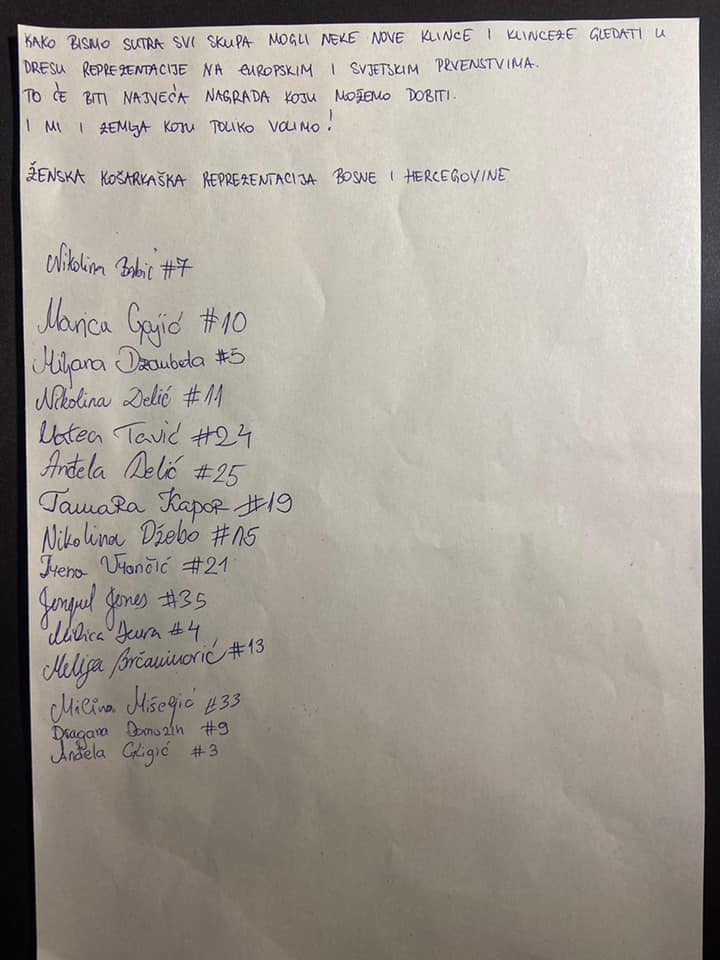 KAKO BISMO SUTRA SVI SKUPA MOGLI NEKE NOVE KLINCE I KLINCEZE GLEDATI U
DRESU REPREZENTACIJE NA EUROPSKIM I SVJETSKIM PRVENSTVIMA.
TO ĆE BITI NAJVEĆA NAGRADA KOJU MOŽEMO DOBITI.
I MI I ZEMLJA KOJU TOLIKO VOLIMO!
ŽENSKA KOŠARKAŠKA REPREZENTACIJA BOSNE I HERCEGOVINE
Nikolina Babić #7
Marica Gajić #10
Miljana Dzombeta #5
Nikolina Delić #11
Matea Tavić #24
Anđela Delić #25
TamaRa KapoR #19
Nikolina Džebo #15
Irena Vrančić #21
Jonquel Jones #35
Milica Deura #4
Melisa Brčaninović #13
Milina Mišeljić #33
Dragana Domuzin #9
Anđela Gligić #3